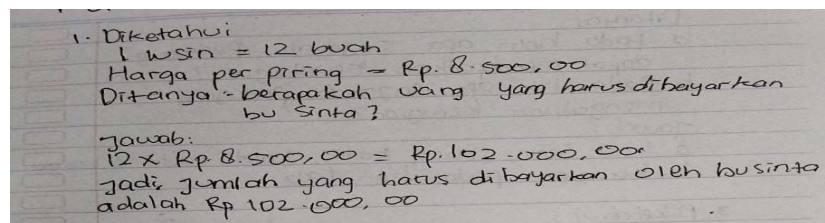 1. Diketahui
1 wsin = 12 buah
Harga per piring = Rp. 8.500,00
Ditanya = berapakah uang yang harus dibayarkan
bu sinta?
Jawab:
12 x Rp. 8.500,00 = Rp. 102.000,00
Jadi, jumlah yang harus dibayarkan oleh bu sinta
adalah Rp 102.000,00